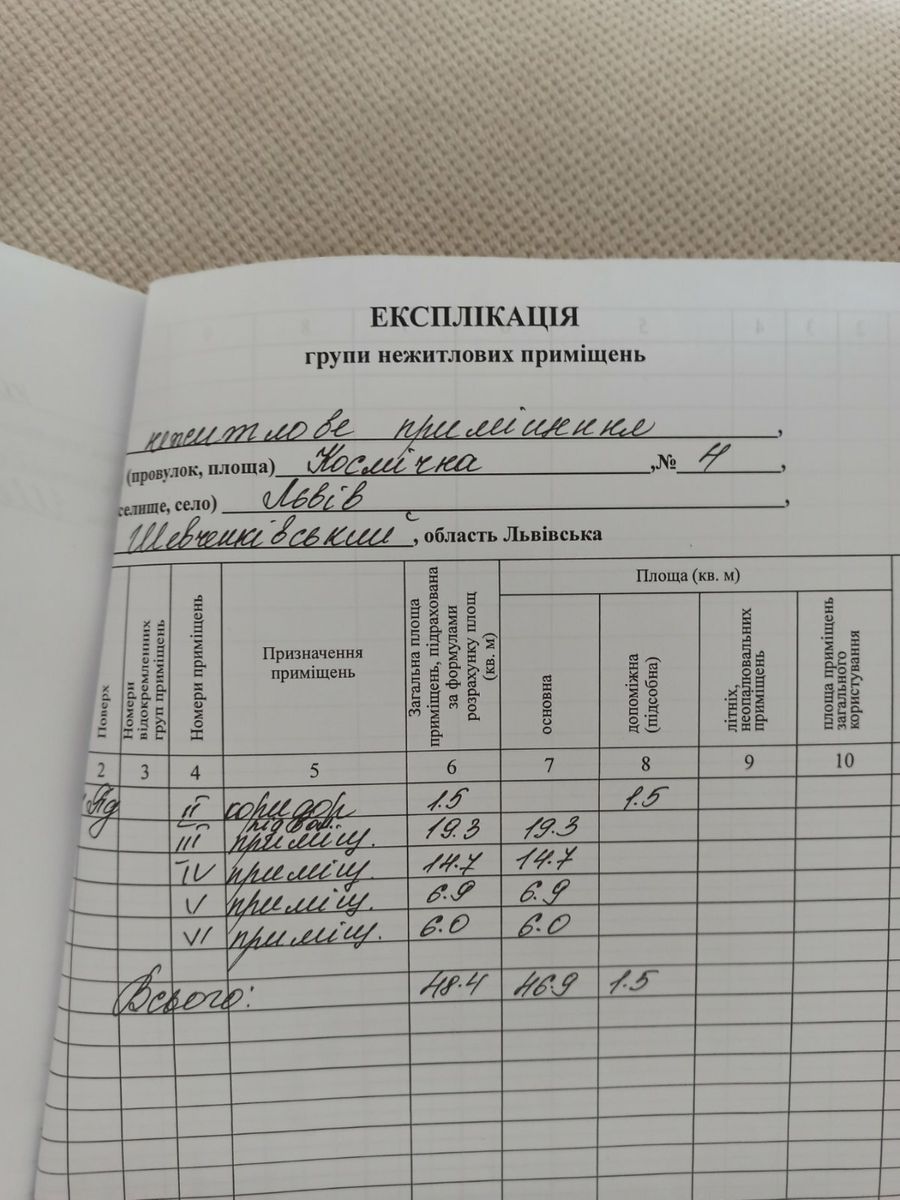 ЕКСПЛІКАЦІЯ
групи нежитлових приміщень
нежитлове приміщення,
(провулок, площа) Космічна ,№ 4 ,
селище, село) Львів ,
Шевченківський , область Львівська
Поверх
Номери відокремлених груп приміщень
Номери приміщень
Призначення приміщень
Загальна площа приміщень, підрахована за формулами розрахунку площ (кв. м)
Площа (кв. м)
основна
допоміжна (підсобна)
літніх, неопалювальних приміщень
площа приміщень загального користування
2 3 4 5 6 7 8 9 10
Під II коридор 1.5 1.5
підвал.
III приміщ. 19.3 19.3
IV приміщ. 14.7 14.7
V приміщ. 6.9 6.9
VI приміщ. 6.0 6.0
Всього: 48.4 46.9 1.5